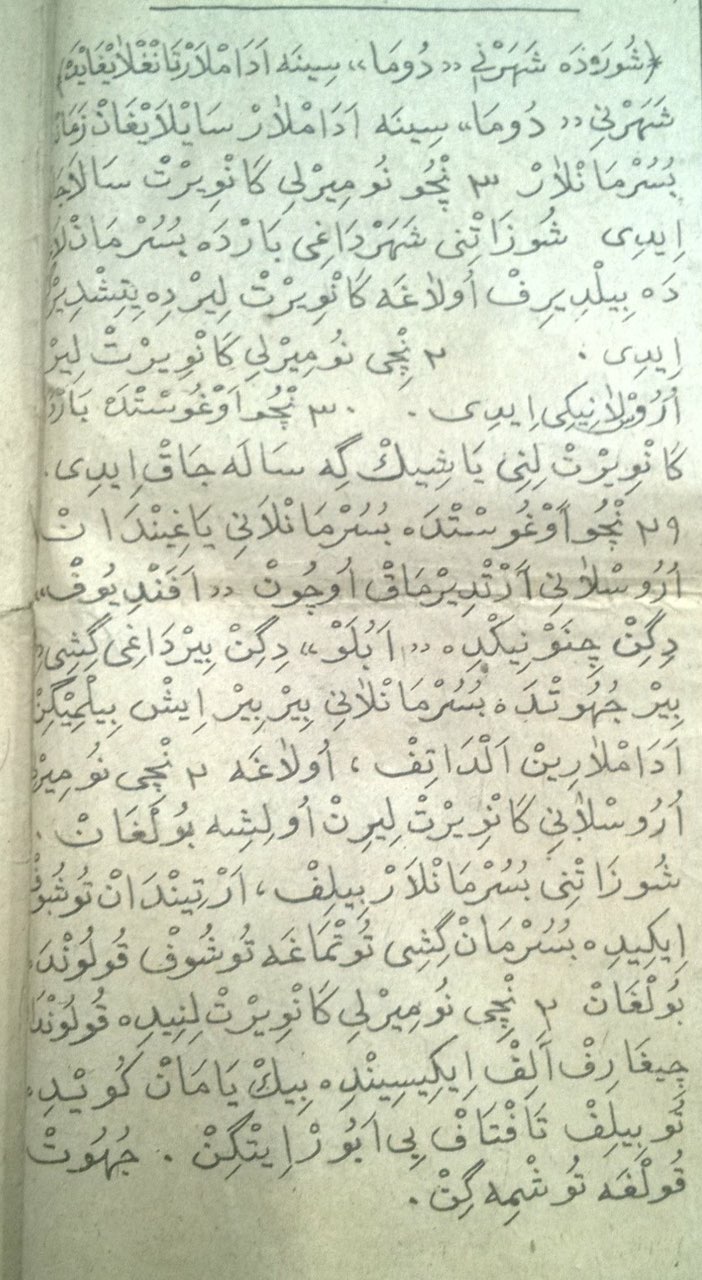 ﴿شُورَہ‌دَہ شَہَرْنِی «دُومَا» سِینَہ اَدَامْلَارْ تَانْغْلَایْغَانْدَہ﴾
شَہَرْنِی «دُومَا» سِینَہ اَدَامْلَارْ سَایْلَایْغَانْ زَمَانْ
بُسُرْمَانْلَارْ ٣ نْچُو نُومِیرْلِی کَانْوِیرْتْ سَالَاجَ
اِیدِی شُوزَاتْنِی شَہَرْدَاغِی بَارْدَہ بُسُرْمَانْلَا
دَہ بِیلْدِیرِفْ اُولَاغَہ کَانْوِیرْتْ لِیرْدِہ یِتِشْدِیرْ
اِیدِی . ٢ نْچِی نُومِیرْلِی کَانْوِیرْتْ لِیرْ
اُرُوسْلَانِیکِی اِیدِی . ٣٠ نْچُو اَوْغُوسْتْدَہ بَارْ
کَانْوِیرْتْ لِنِی یَاشِیكْ گِہ سَالَہ جَاقْ اِیدِی.
٢٩ نْچُو اَوْغُوسْتْدَہ بُسُرْمَانْلَانِی یَاغِینْدَا تْ
اُرُوسْلَانِی اَرْتْدِیرْمَاقْ اُوچُونْ «اَفَنْدِیُوفْ»
دِگِنْ چِنَوْنِیکْدِہ «اَبُلَوْ» دِگِنْ بِیرْدَاغِی گِشِی
بِیرْ جُہُوتْدَہ بُسُرْمَانْلَانِی بِیرْ بِیرْ اِیشْ بِیلْمِیْگِنْ
اَدَامْلَارِینْ اَلْدَاتِفْ، اُولَاغَہ ٢ نْچِی نُومِیرْ
اُرُوسْلَانِی کَانْوِیرْتْ لِیرِنْ اُولِشِہ بُولْغَانْ.
شُوزَاتْنِی بُسُرْمَانْلَارْ بِیلِفْ، اَرْتِینْدَانْ تُوشُوفْ
اِیکِیدِہ بُسُرْمَانْ گِشِی تُوتْمَاغَہ تُوشُوفْ قُولُوْنْدَہ
بُولْغَانْ ٢ نْچِی نُومِیرْلِی کَانْوِیرْتْ لِنِیدِہ قُولُوْنْدَا
چِیغَارِفْ اَلِفْ اِیکِیسِینْدِہ بِیكْ یَامَانْ کُویْدِہ
تَوبِیلِفْ تَافْتَافْ بِی اَبُورْ اِیتْگِنْ . جُہُوتْ
قُولْغَہ تُوشْمِہ گِنْ.